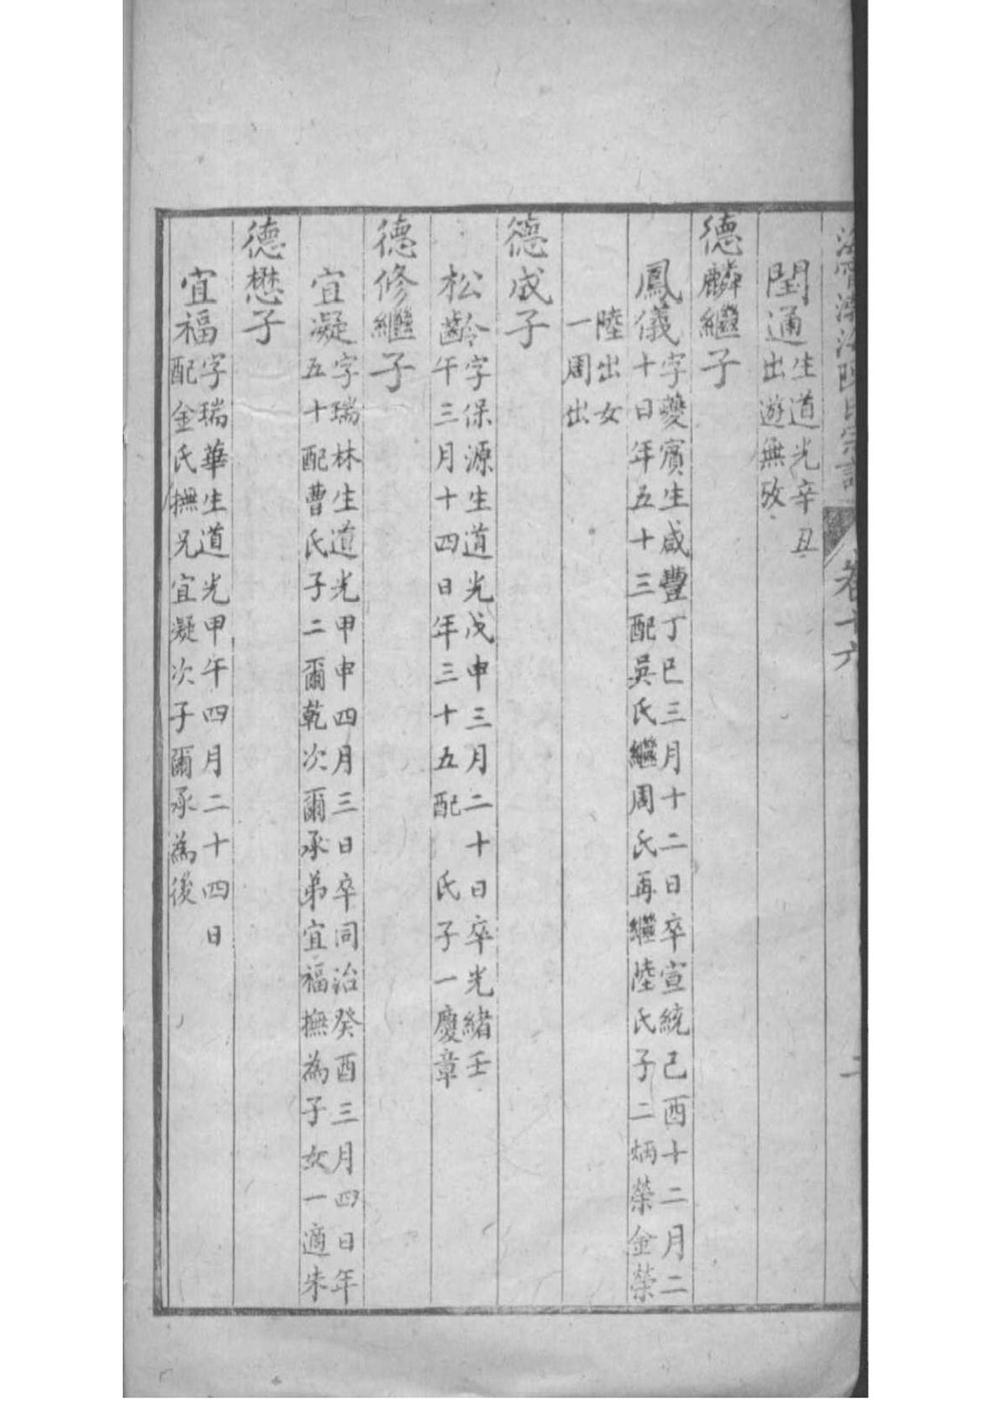 卷十六
閏通生道光辛丑
出遊無攷
德麟繼子
鳳儀字夔賓生咸豐丁巳三月十二日卒宣統己酉十二月二
十日年五十三配吳氏繼周氏再繼陸氏子二炳榮金榮
陸出女
一周出
德成子
松齡字保源生道光戊申三月二十日卒光緒壬
午三月十四日年三十五配 氏子一慶章
德修繼子
宜凝字瑞林生道光甲申四月三日卒同治癸酉三月四日年
五十配曹氏子二爾乾次爾承弟宜福撫為子女一適朱
德懋子
宜福字瑞華生道光甲午四月二十四日
配金氏撫兄宜凝次子爾承為後